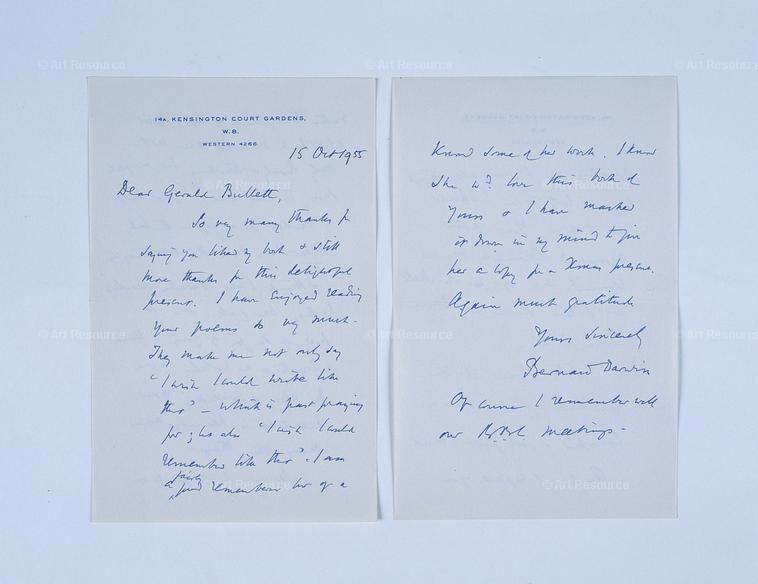 14A, KENSINGTON COURT GARDENS,
W.8.
WESTERN 4266
15 Oct 1955
Dear Gerald Bullett,
So very many thanks for
saying you liked my book & still
more thanks for this delightful
present. I have enjoyed reading
your poems so very much.
They make me not only say
"I wish I could write like
this" – which is past praying
for; but also "I wish I could
remember like this". I am
fairly
a good rememberer but of a
Know some of her work. I know
she wd. love this book of
yours & I have marked
it down in my mind to give
her a copy for a Xmas present.
Again much gratitude
Yours sincerely
Bernard Darwin
Of course I remember well
our B.B.C. meetings.
© Art Resource
© Art Resource
© Art Resource
© Art Resource
© Art Resource
© Art Resource
© Art Resource
© Art Resource
© Art Resource
© Art Resource
© Art Resource